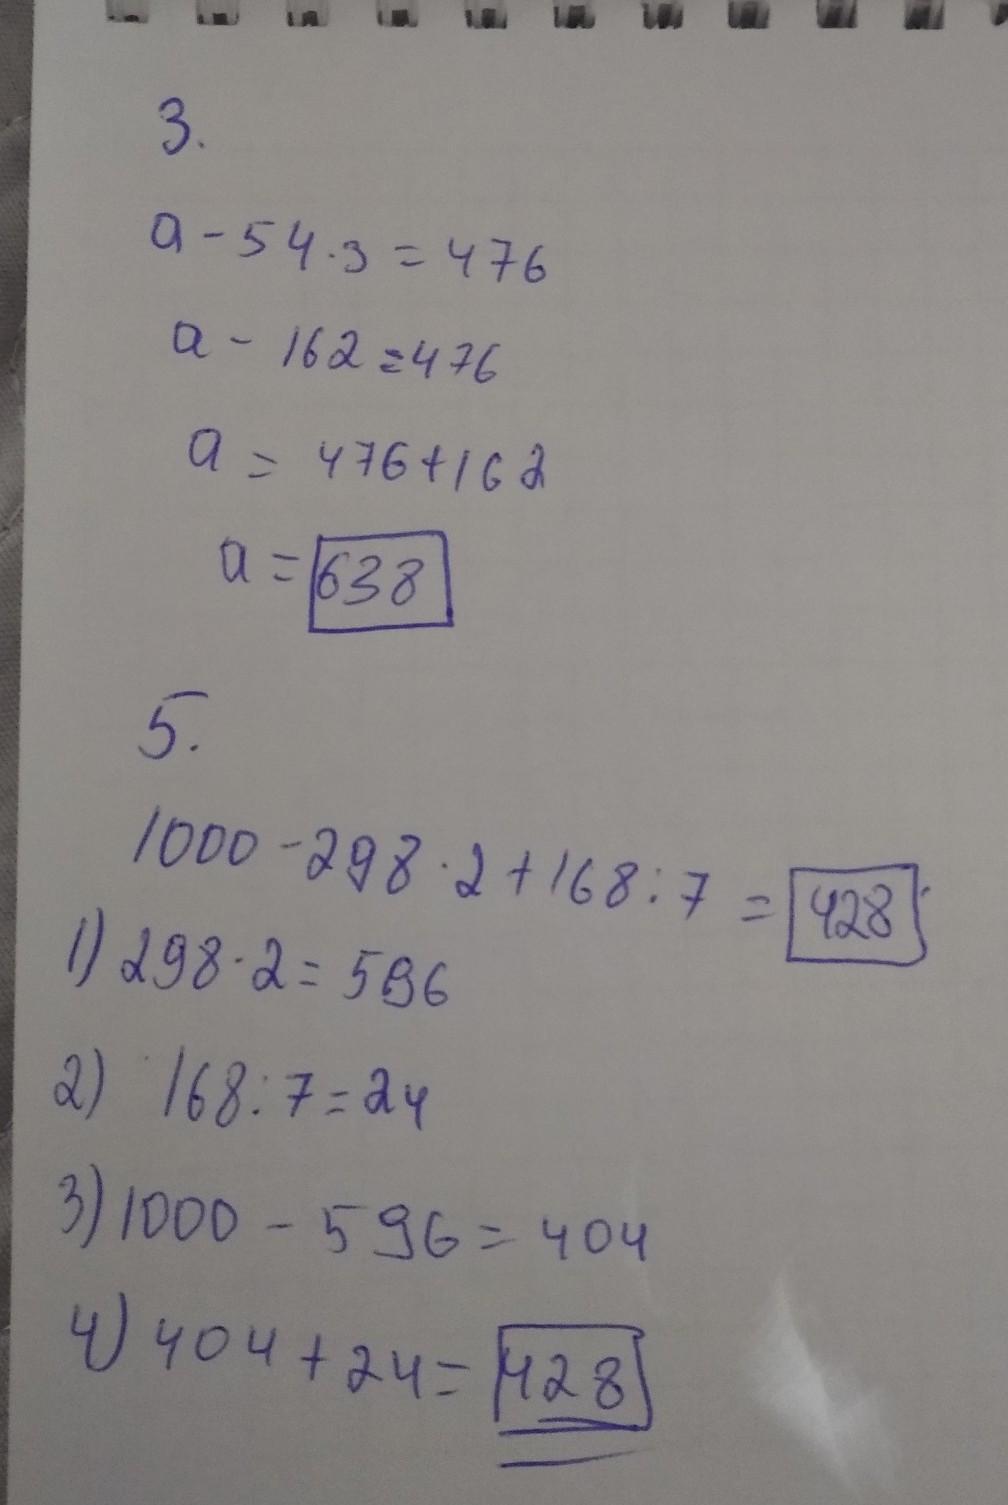 3.
a - 54 · 3 = 476
a - 162 = 476
a = 476 + 162
a = 638
5.
1000 - 298 · 2 + 168 : 7 = 428
1) 298 · 2 = 596
2) 168 : 7 = 24
3) 1000 - 596 = 404
4) 404 + 24 = 428